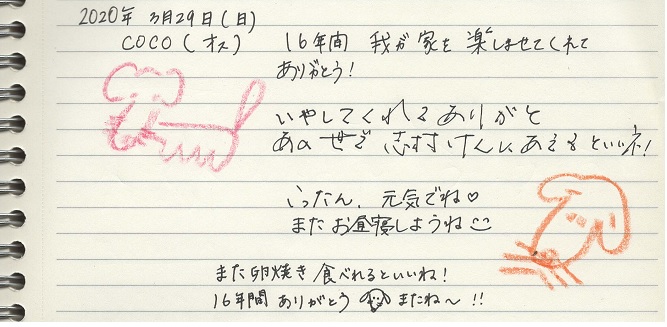 2020年 3月29日(日)
COCO(オス) 16年間 我が家を楽しませてくれて
ありがとう!
いやしてくれてありがと
あの世で志村けんにあえるといいネ!
いったん、元気でね♡
またお昼寝しようね
また卵焼き食べれるといいね!
16年間ありがとう またね〜!!